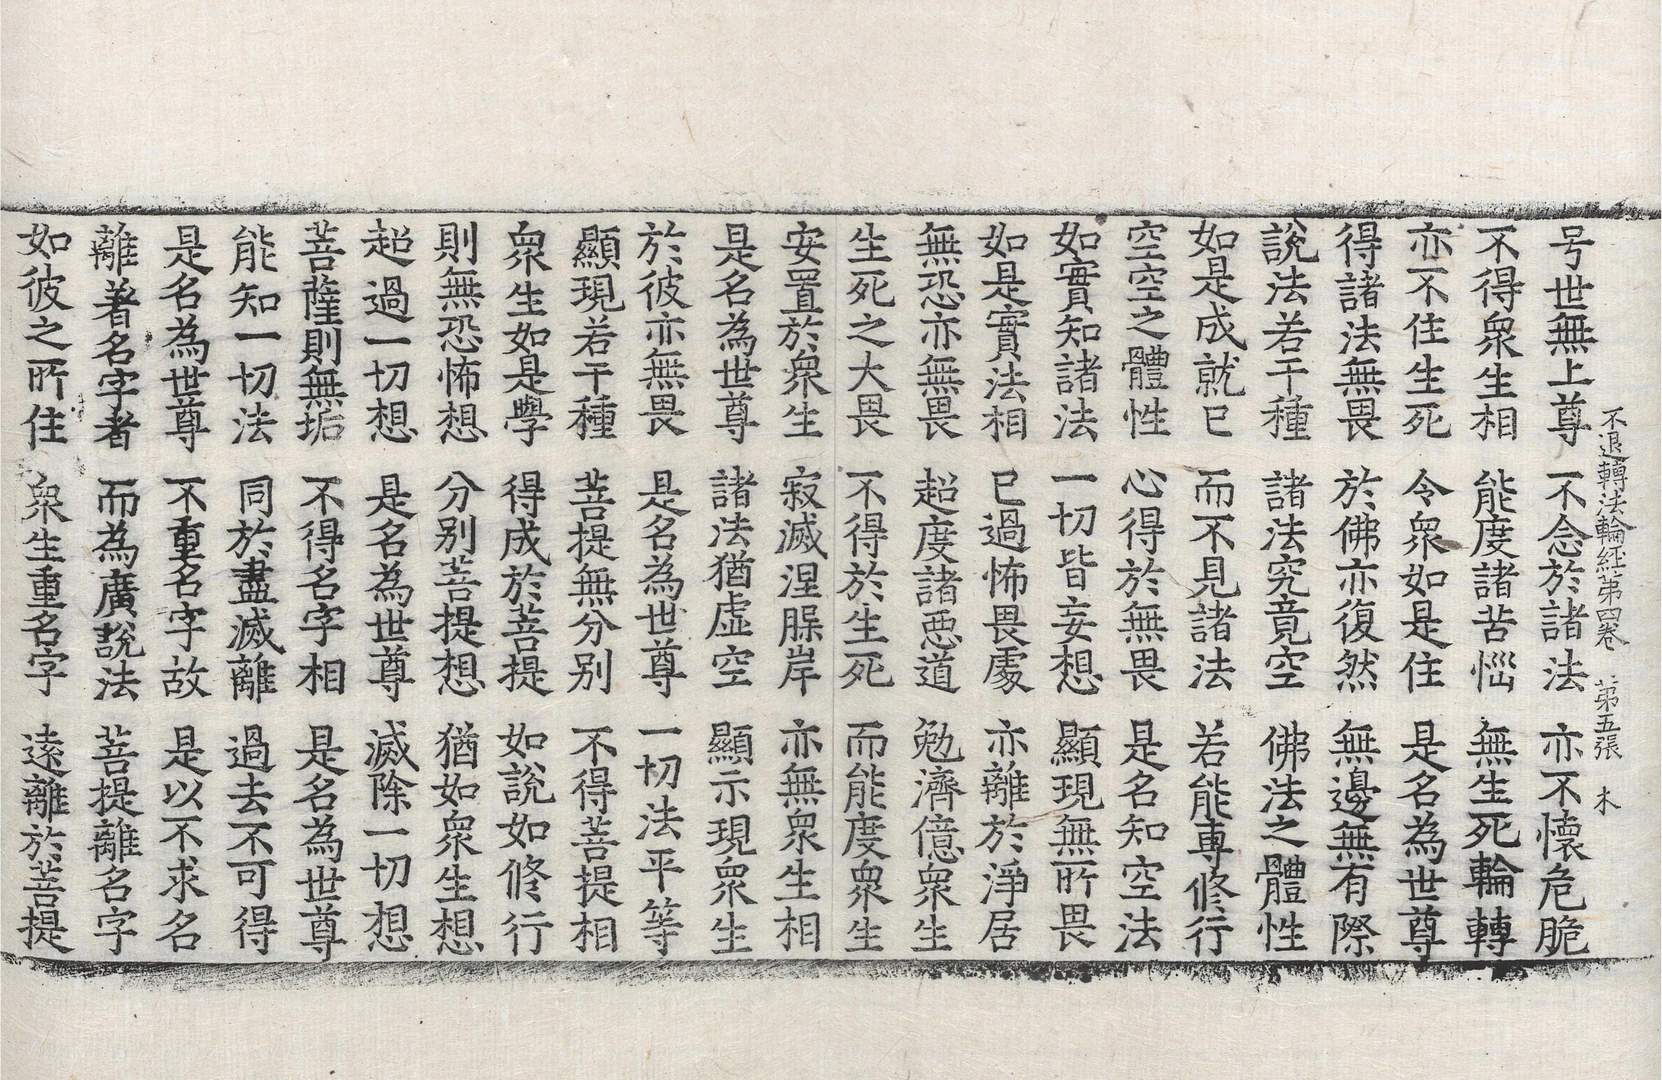 不退轉法輪経第四卷　第五張　木
号世無上尊　不念於諸法　亦不懷危脆
不得衆生相　能度諸苦惱　無生死輪轉
亦不住生死　令衆如是住　是名為世尊
得諸法無畏　於佛亦復然　無邊無有際
說法若干種　諸法究竟空　佛法之體性
如是成就已　而不見諸法　若能專修行
空空之體性　心得於無畏　是名知空法
如實知諸法　一切皆妄想　顯現無所畏
如是實法相　已過怖畏處　亦離於淨居
無恐亦無畏　超度諸惡道　勉濟億衆生
生死之大畏　不得於生死　而能度衆生
安置於衆生　寂滅涅槃岸　亦無衆生相
是名為世尊　諸法猶虛空　顯示現衆生
於彼亦無畏　是名為世尊　一切法平等
顯現若干種　菩提無分別　不得菩提相
衆生如是學　得成於菩提　如說如修行
則無恐怖想　分別菩提想　猶如衆生想
超過一切想　是名為世尊　滅除一切想
菩薩則無垢　不得名字相　是名為世尊
能知一切法　同於盡滅離　過去不可得
是名為世尊　不重名字故　是以不求名
離著名字者　而為廣說法　菩提離名字
如彼之所住　衆生重名字　遠離於菩提